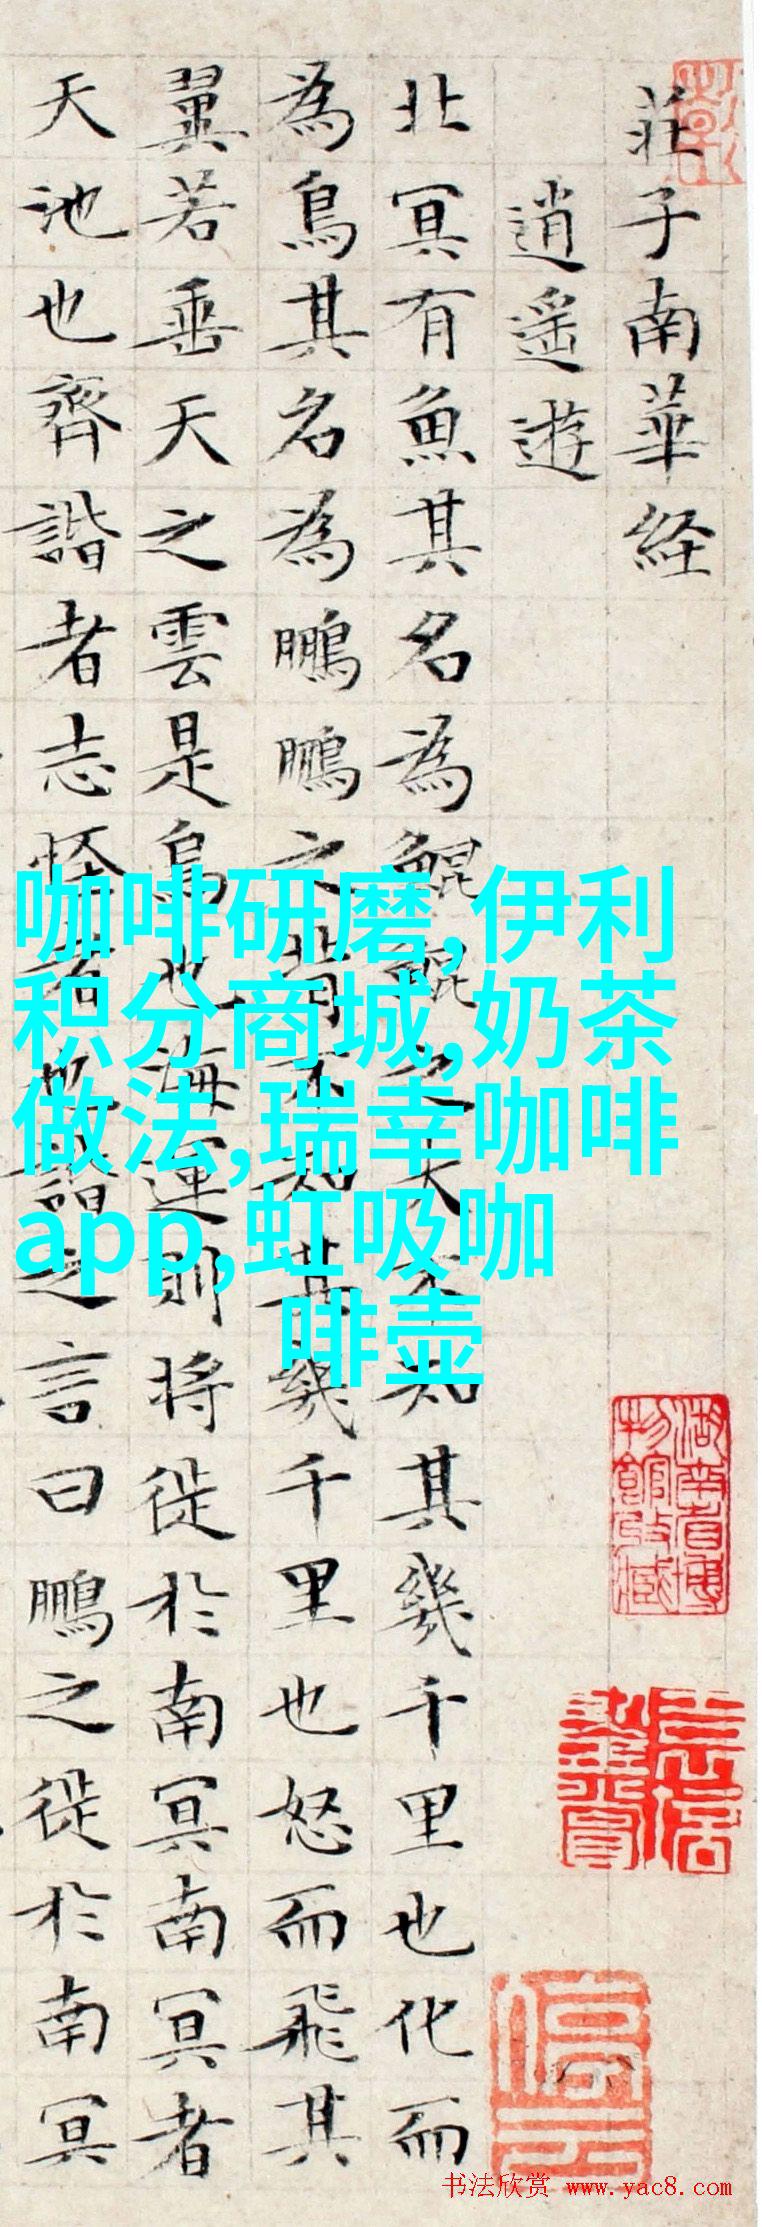 莊子南華経
逍遥遊
北冥有魚其名為鯤鯤之大不知其幾千里也化而
為鳥其名為鵬鵬之背不知其幾千里也怒而飛其
翼若垂天之雲是鳥也海運則将徙於南冥南冥者
天池也齊諧者志怪者也諧之言曰鵬之徙於南冥
咖啡研磨,伊利
积分商城,奶茶
做法,瑞幸咖啡
app,虹吸咖
啡壶
湖南省博
物館收藏
停云
书法欣赏 www.yac8.com